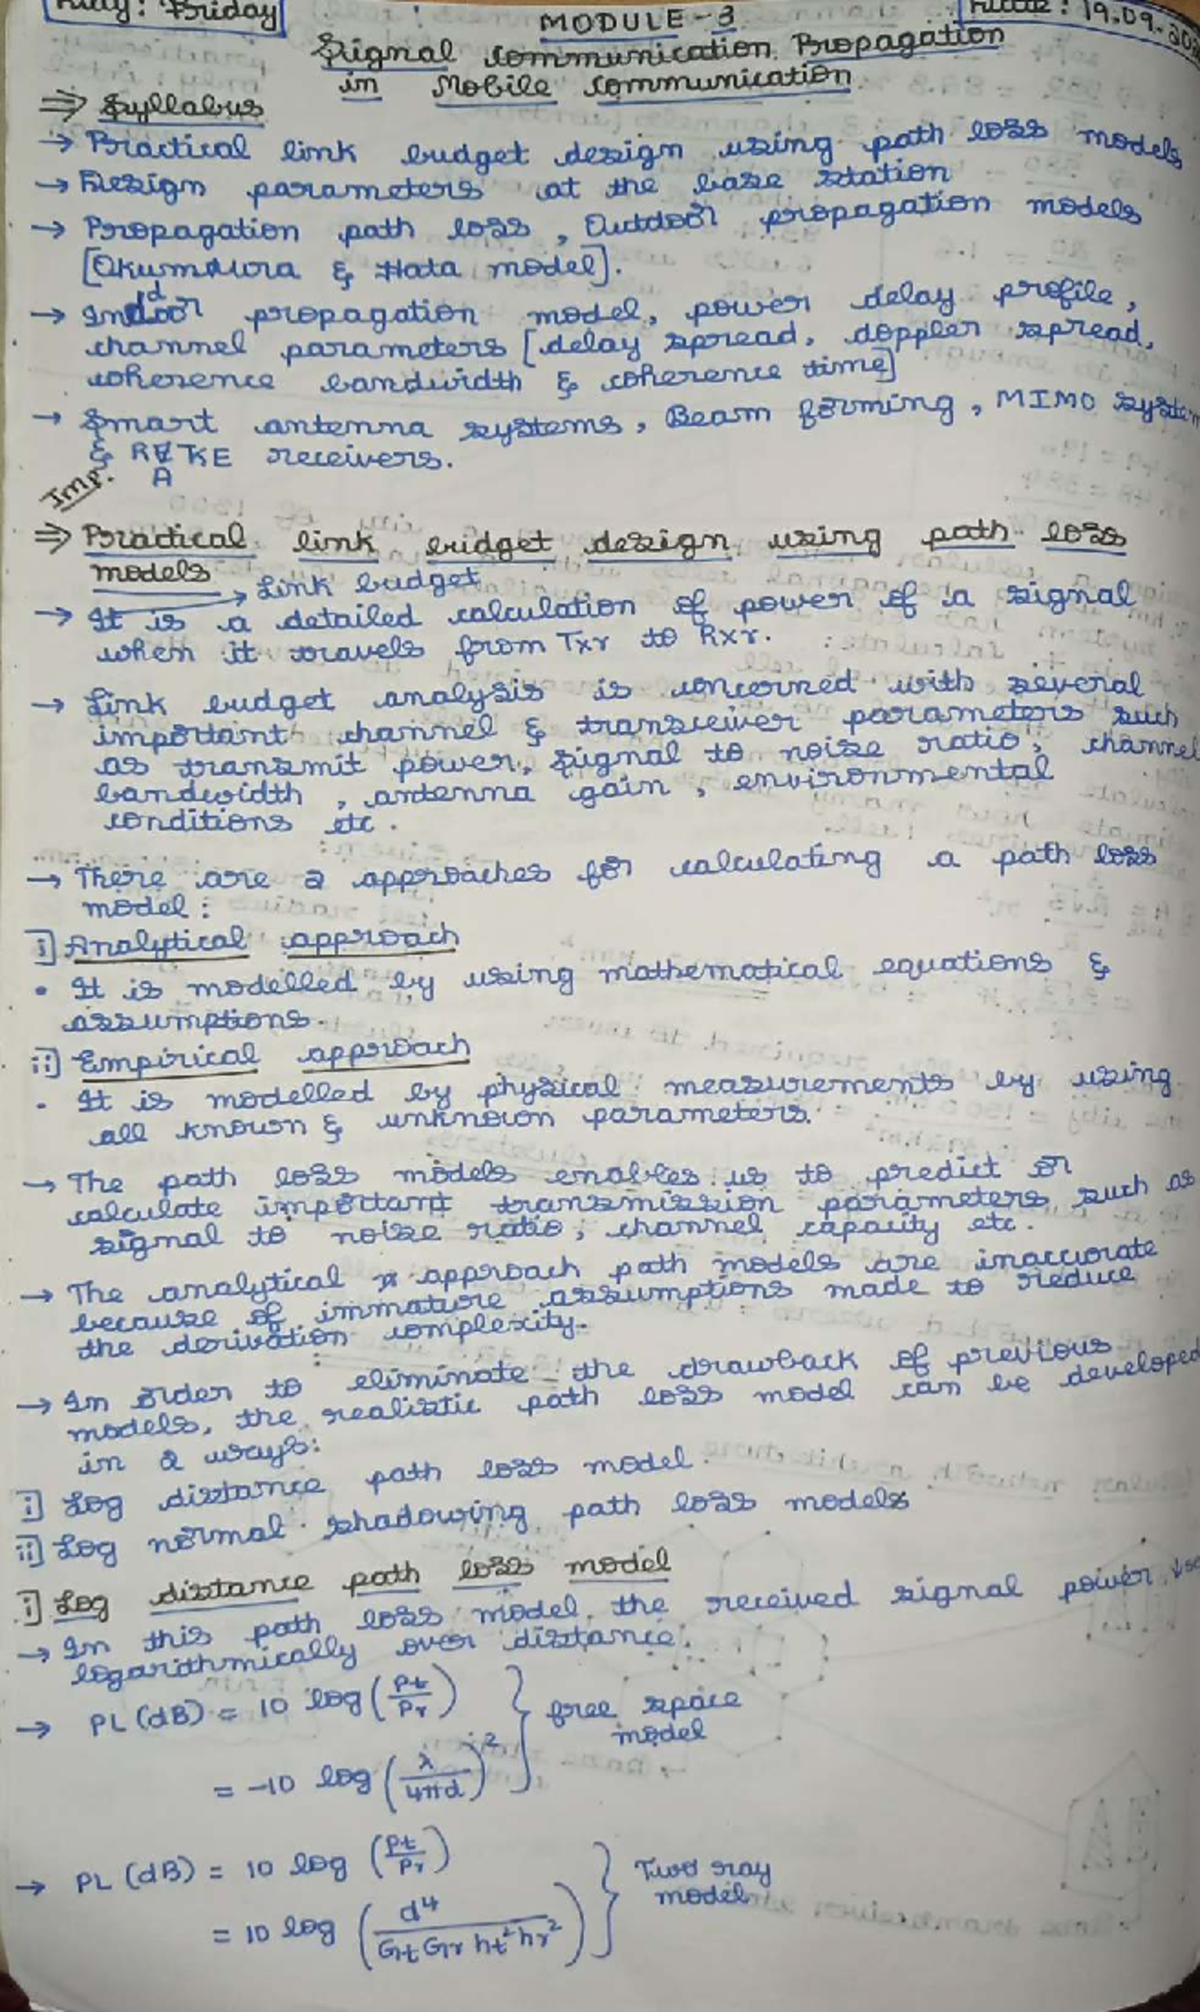 Day: Friday
Date: 19.09.20
MODULE-3
Signal communication Propagation
in Mobile communication
⇒ Syllabus
→ Practical link budget design using path loss models
→ Design parameters at the base station
→ Propagation path loss, Outdoor propagation models
[Okumdura & Hata model].
→ Indoor propagation model, power delay profile,
channel parameters [delay spread, doppler spread,
coherence bandwidth & coherence time]
→ Smart antenna systems, Beam forming, MIMO system
& RAKE receivers.
Imp.
⇒ Practical link bridget design using path loss
models
→ Link budget
→ It is a detailed calculation of power of a signal
when it travels from Txr to Rxr.
→ Link budget analysis is concerned with several
important channel & transceiver parameters such
as transmit power, signal to noise ratio, channel
bandwidth, antenna gain, environmental
conditions etc.
→ There are 2 approaches for calculating a path loss
model:
i] Analytical approach
• It is modelled by using mathematical equations &
assumptions.
ii] Empirical approach
• It is modelled by physical measurements by using
all known & unknown parameters.
→ The path loss models enables us to predict or
calculate important transmission parameters such as
signal to noise ratio, channel capacity etc.
→ The analytical approach path models are inaccurate
because of immature assumptions made to reduce
the derivation complexity.
→ In order to eliminate the drawback of previous
models, the realistic path loss model can be developed
in 2 ways:
i] Log distance path loss model.
ii] Log normal shadowing path loss models
i] Log distance path loss model
→ In this path loss model, the received signal power ↓se
logarithmically over distance.
→ PL (dB) = 10 log (Pt/Pr) } free space
= -10 log (λ/4πd)² model
→ PL (dB) = 10 log (Pt/Pr) } Two ray
= 10 log (d⁴/Gt Gr ht² hr²) model